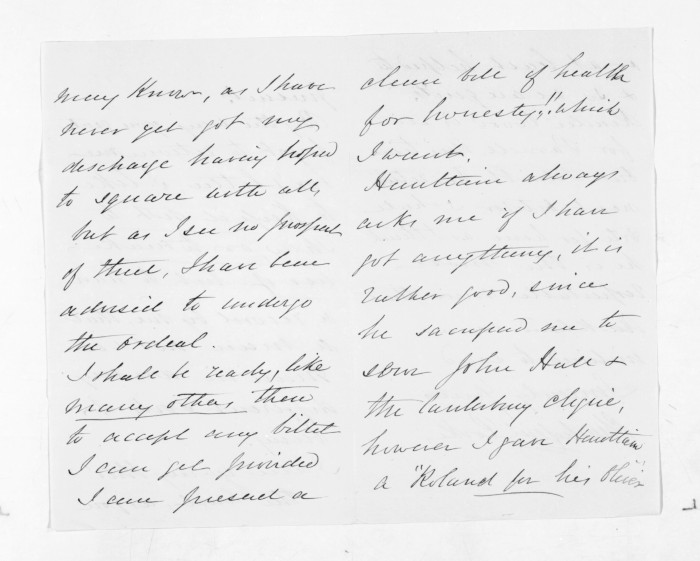 may know, as I have
never yet got my
discharge having hoped
to square with all,
but as I see no prospect
of that, I have been
advised to undergo
the ordeal.
I shall be ready, like
many others, then
to accept any billet
I can get provided
I can present a
clean bill of health
for honesty!! which
I want.
always
asks me if I have
got anything, it is
rather good, since
he sacrificed me to
serve John Hall &
the Canterbury clique,
however I gave
a "Roland for his Oliver"